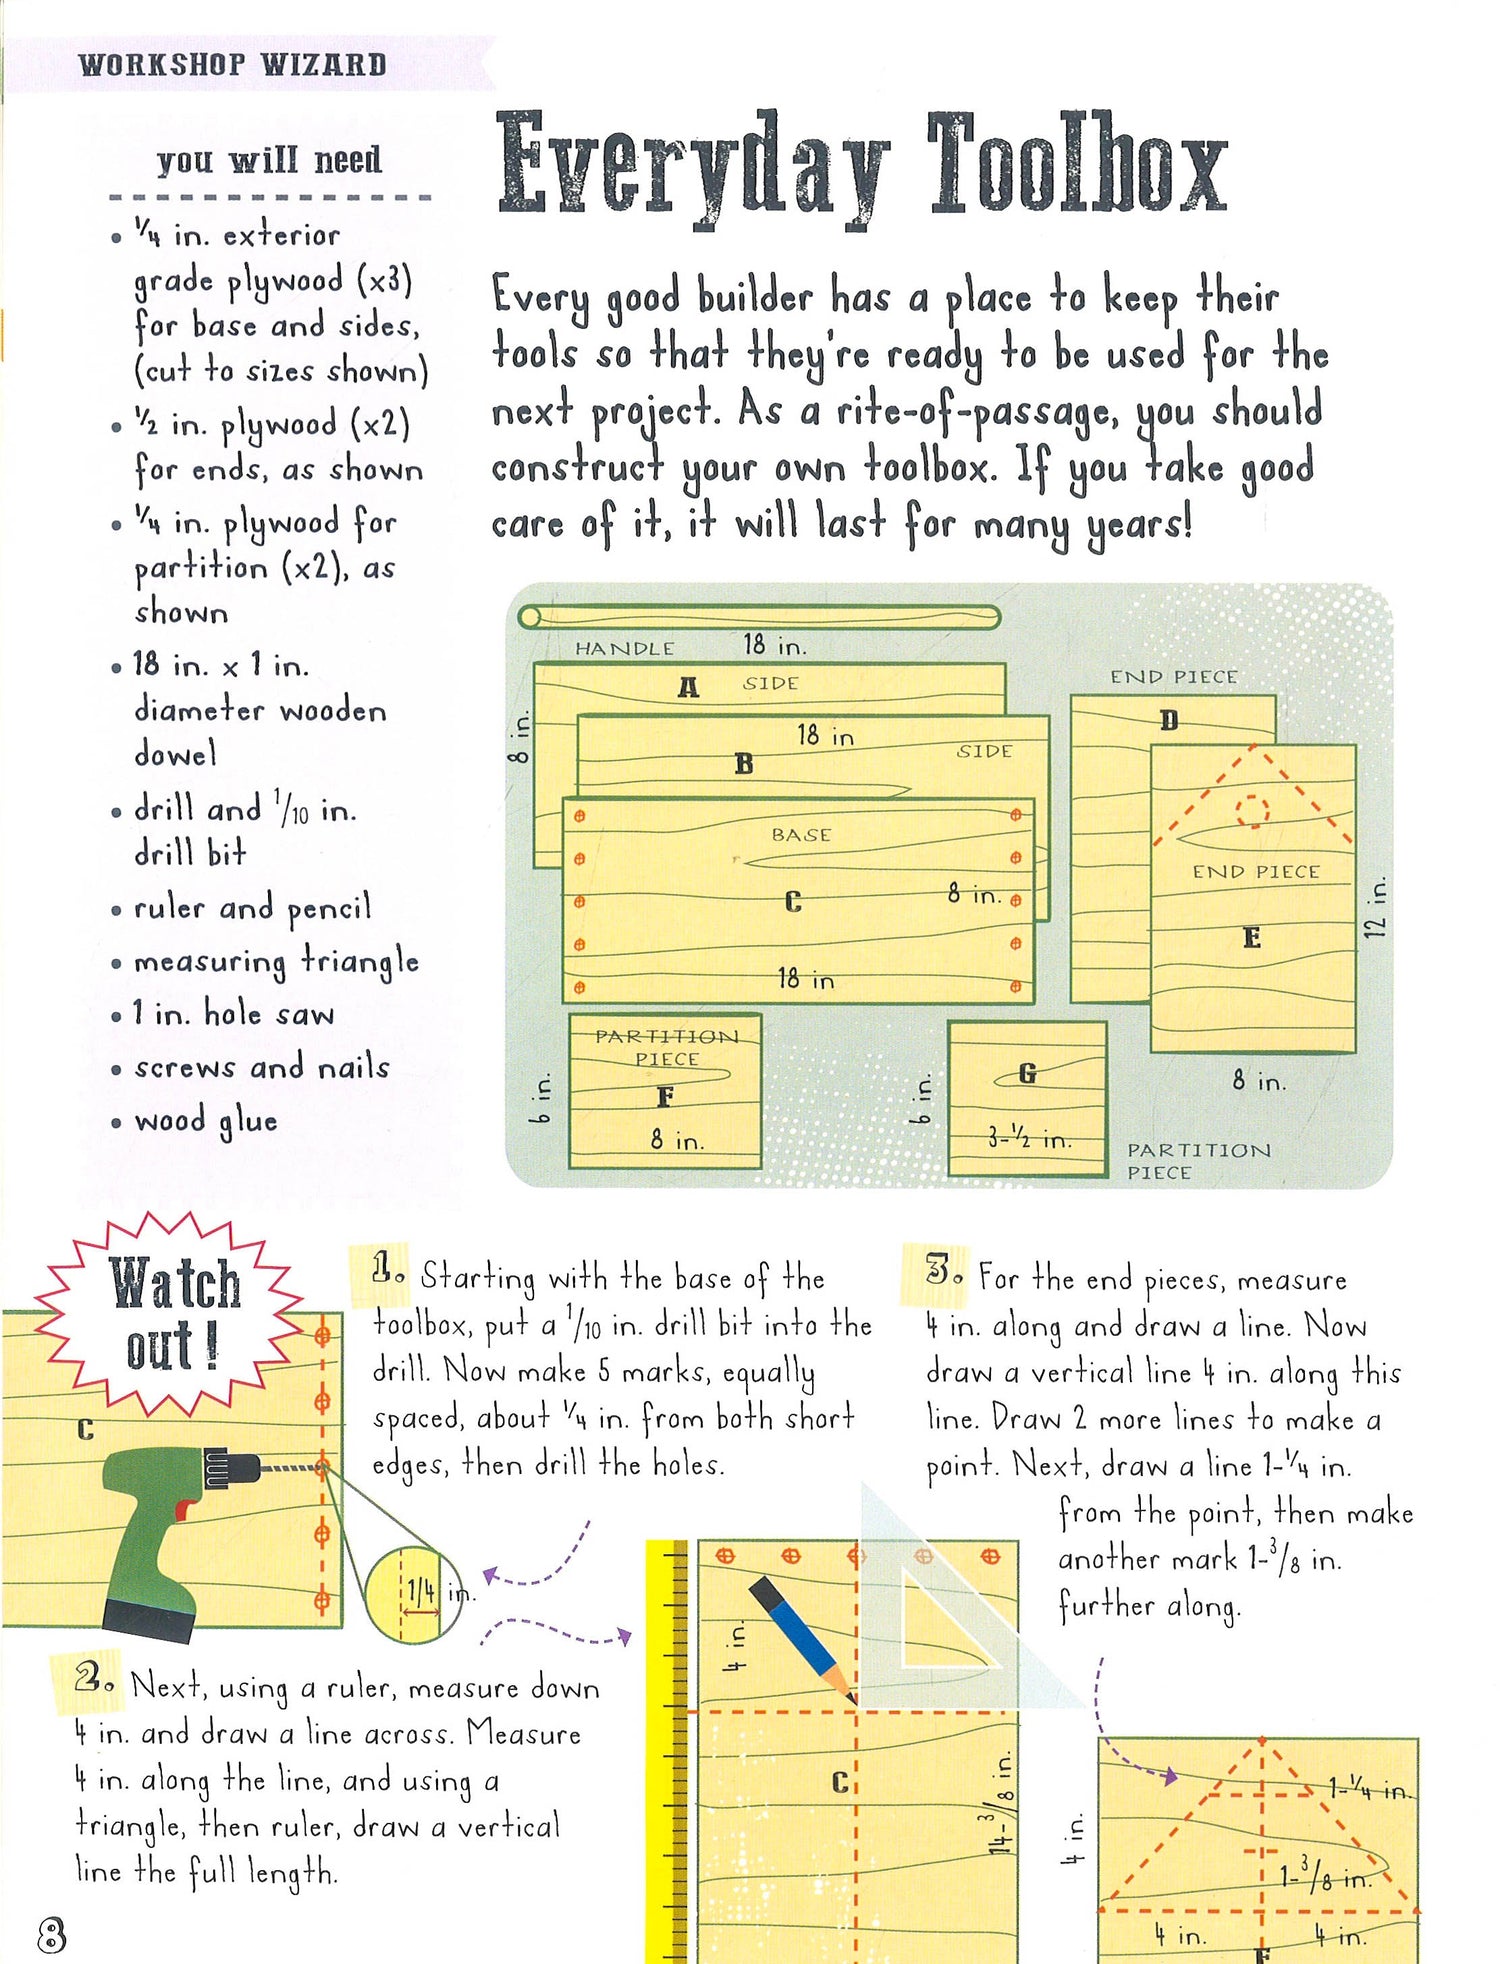 WORKSHOP WIZARD
you will need
• 1/4 in. exterior
grade plywood (x3)
for base and sides,
(cut to sizes shown)
• 1/2 in. plywood (x2)
for ends, as shown
• 1/4 in. plywood for
partition (x2), as
shown
• 18 in. x 1 in.
diameter wooden
dowel
• drill and 1/10 in.
drill bit
• ruler and pencil
• measuring triangle
• 1 in. hole saw
• screws and nails
• wood glue
Everyday Toolbox
Every good builder has a place to keep their
tools so that they're ready to be used for the
next project. As a rite-of-passage, you should
construct your own toolbox. If you take good
care of it, it will last for many years!
HANDLE 18 in.
A SIDE
8 in.
18 in
B
SIDE
BASE
C
8 in.
18 in
END PIECE
D
END PIECE
E
12 in.
8 in.
PARTITION
PIECE
F
8 in.
6 in.
G
3-1/2 in.
6 in.
PARTITION
PIECE
Watch
out!
C
1/4 in.
1. Starting with the base of the
toolbox, put a 1/10 in. drill bit into the
drill. Now make 5 marks, equally
spaced, about 1/4 in. from both short
edges, then drill the holes.
2. Next, using a ruler, measure down
4 in. and draw a line across. Measure
4 in. along the line, and using a
triangle, then ruler, draw a vertical
line the full length.
4 in.
C
14-3/8 in.
3. For the end pieces, measure
4 in. along and draw a line. Now
draw a vertical line 4 in. along this
line. Draw 2 more lines to make a
point. Next, draw a line 1-1/4 in.
from the point, then make
another mark 1-3/8 in.
further along.
1-1/4 in.
4 in.
1-3/8 in.
4 in. 4 in.
8